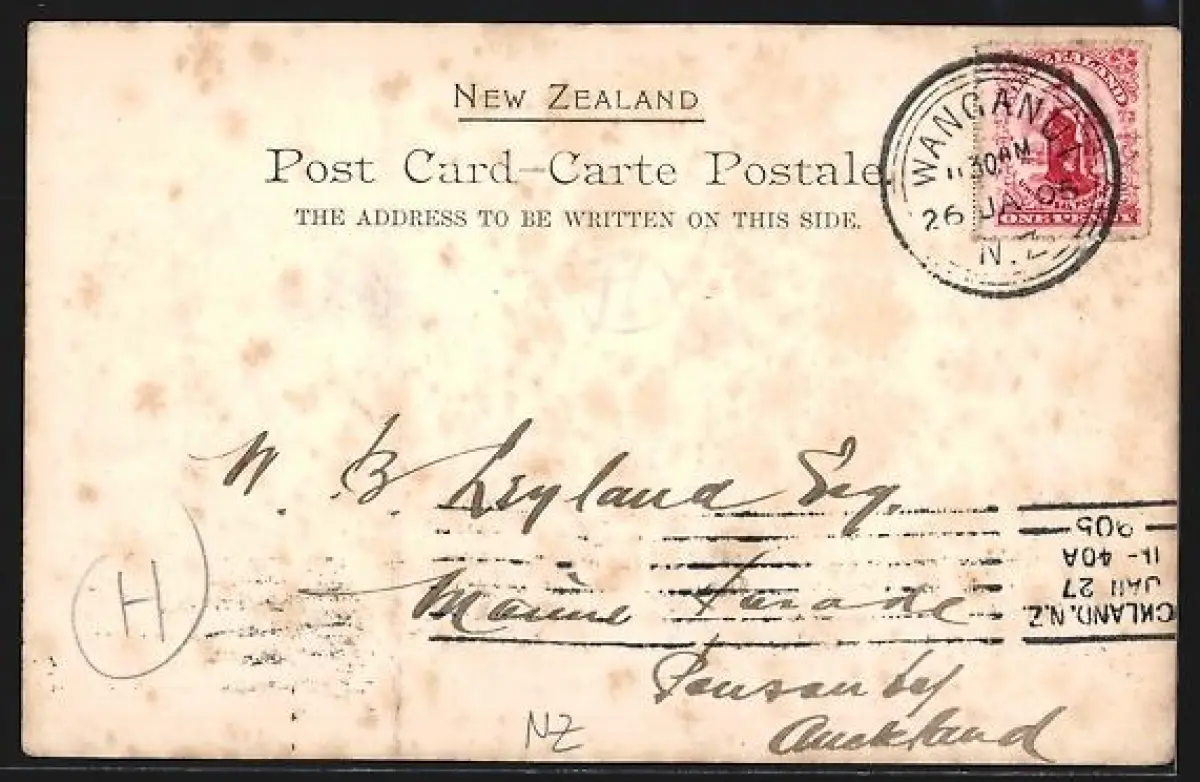 NEW ZEALAND
Post Card–Carte Postale.
THE ADDRESS TO BE WRITTEN ON THIS SIDE.
ZEALAND
ONE PENNY
WANGANUI
11 30AM
26 JA 05
N.Z
W. B. Leyland Esq.
Marine Parade
Ponsonby
Auckland
H
NZ
CKLAND, N.Z.
JAN 27
11-40A
905